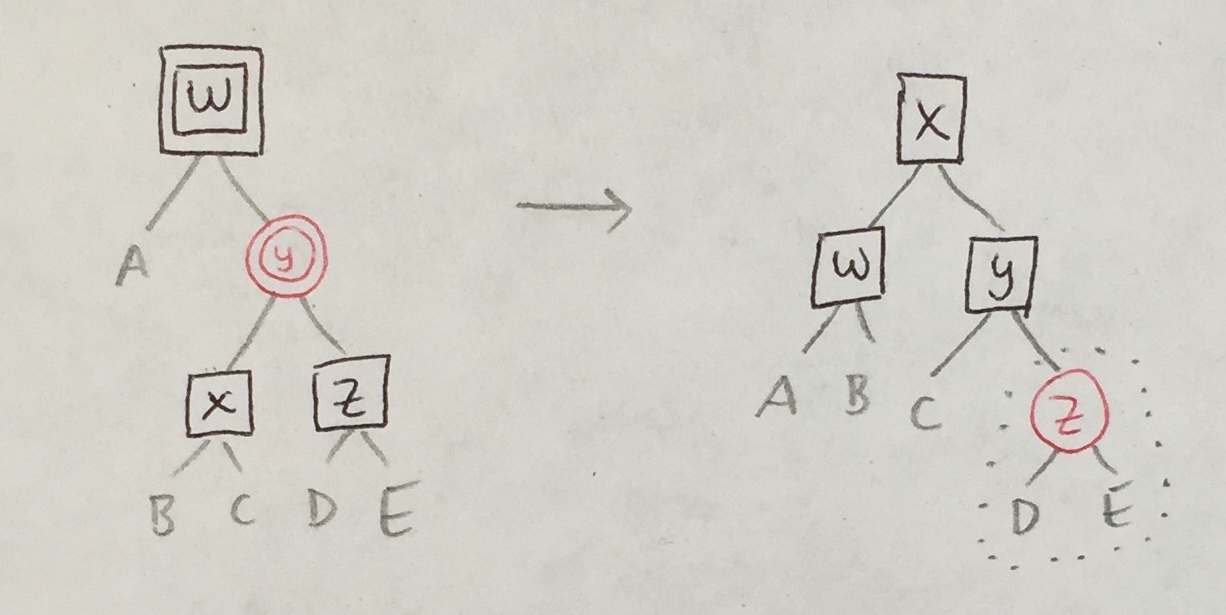 W
A
y
x
z
B C D E
X
W
y
A B C
Z
D E